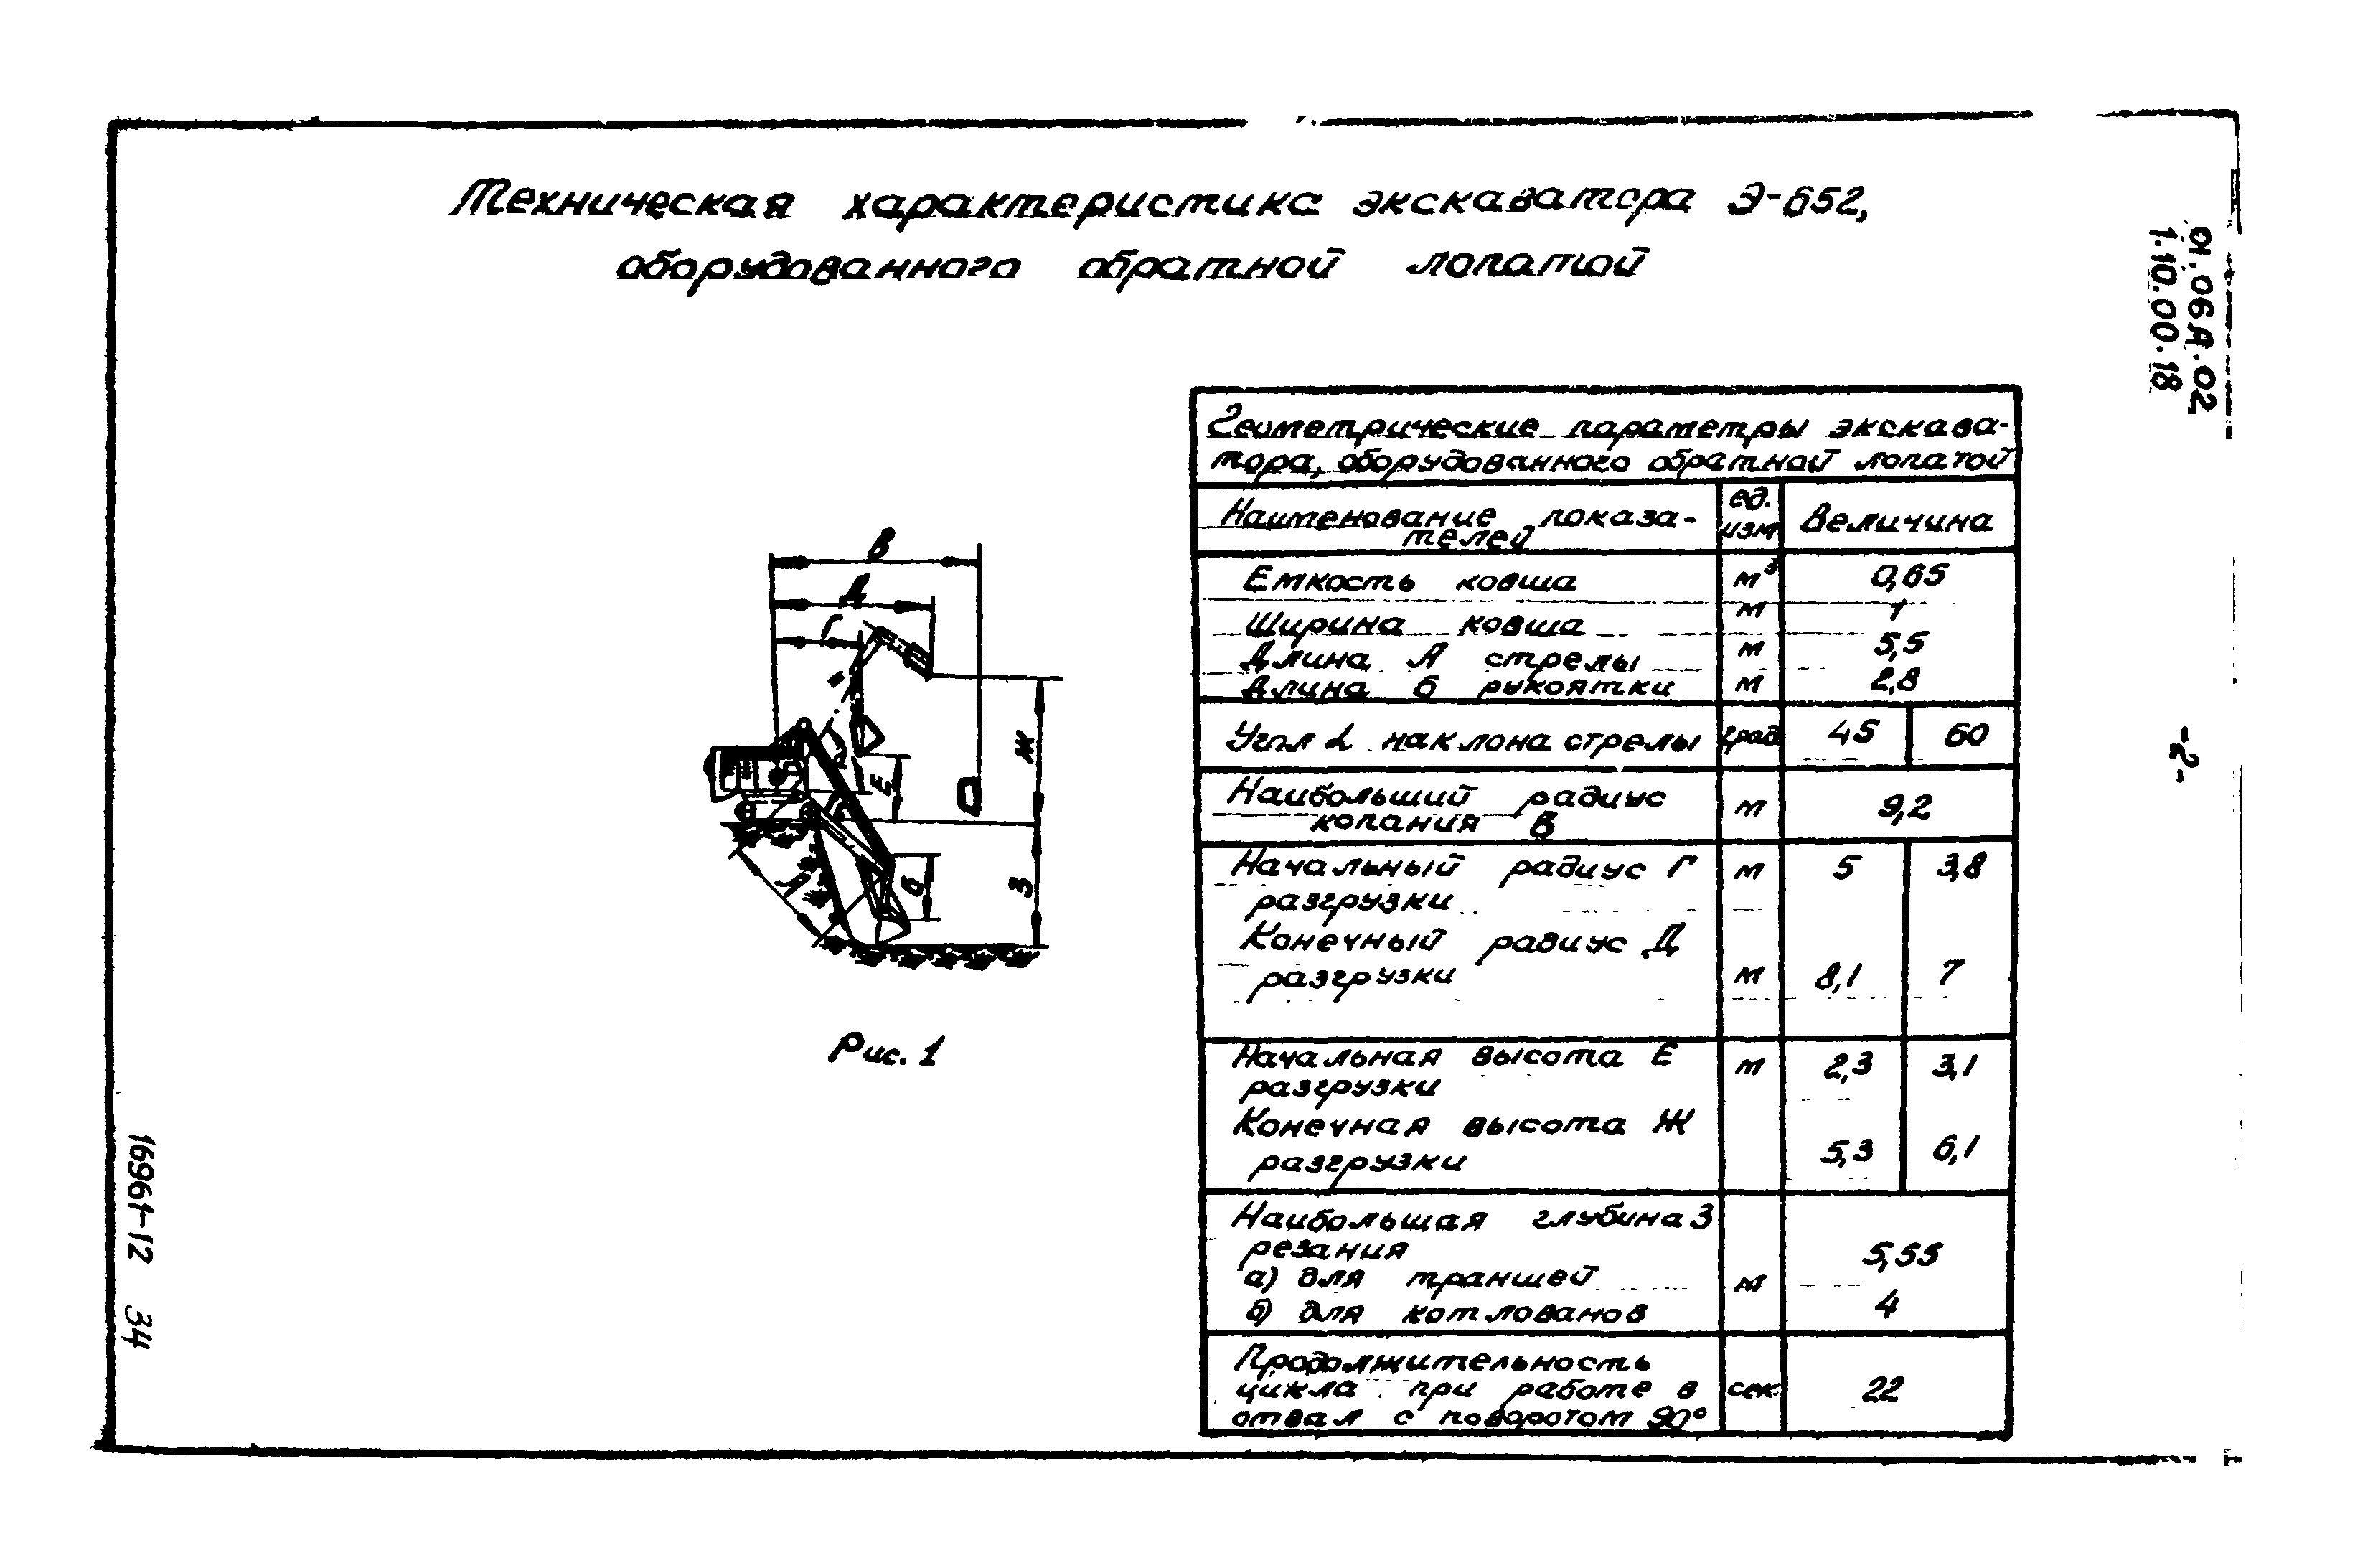 Техническая характеристика экскаватора Э-652,
оборудованного обратной лопатой
01.06А.02
1.10.00.18
-2-
В
Д
Г
Е
Ж
А
б
З
Рис. 1
Геометрические параметры экскава-
тора, оборудованного обратной лопатой
Наименование показа- ед. Величина
телей изм
Емкость ковша м³ 0,65
Ширина ковша м 1
Длина А стрелы м 5,5
Длина б рукоятки м 2,8
Угол α наклона стрелы град 45 60
Наибольший радиус м 9,2
копания В
Начальный радиус Г м 5 3,8
разгрузки
Конечный радиус Д
разгрузки м 8,1 7
Начальная высота Е м 2,3 3,1
разгрузки
Конечная высота Ж
разгрузки 5,3 6,1
Наибольшая глубина З
резания 5,55
а) для траншей м
б) для котлованов 4
Продолжительность
цикла при работе в сек. 22
отвал с поворотом 90°
16961-12 34